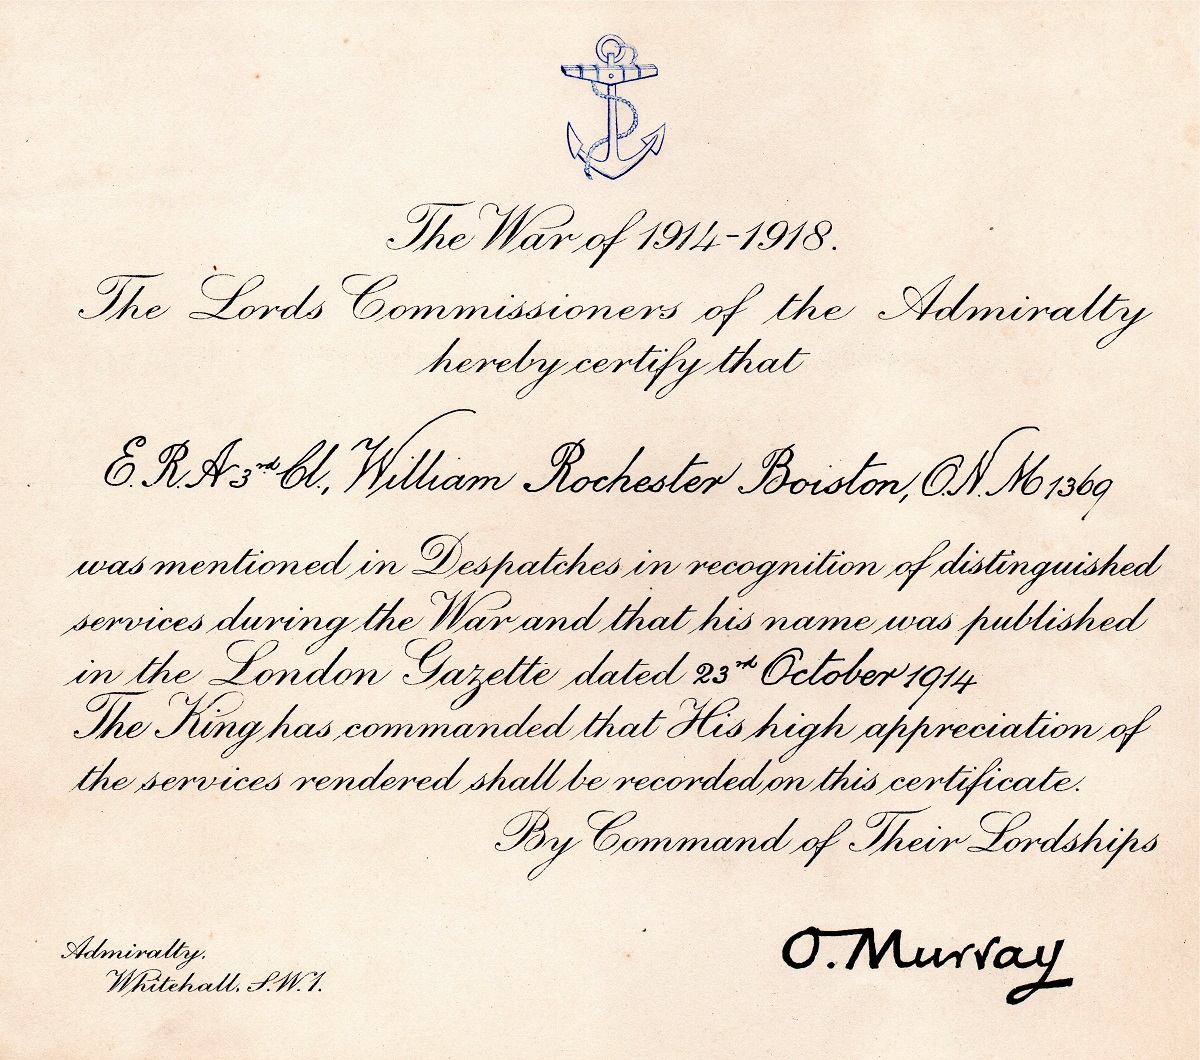 The War of 1914-1918.
The Lords Commissioners of the Admiralty
hereby certify that
E.R.A 3rd Cl., William Rochester Boiston, O.N. M 1369
was mentioned in Despatches in recognition of distinguished
services during the War and that his name was published
in the London Gazette dated 23rd October 1914
The King has commanded that His high appreciation of
the services rendered shall be recorded on this certificate.
By Command of Their Lordships
O. Murray
Admiralty,
Whitehall, S.W.1.